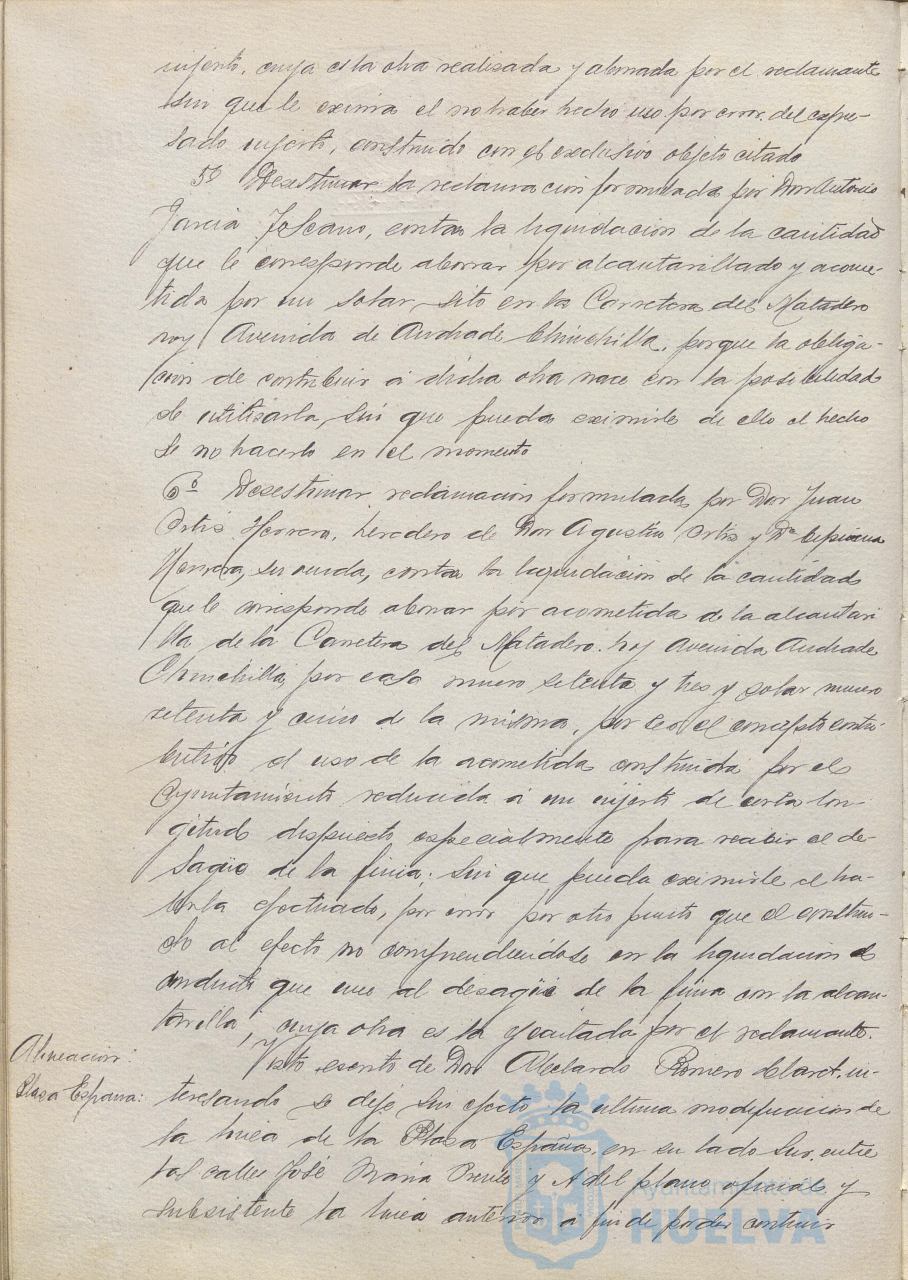 injerto, cuya es la obra realizada y abonada por el reclamante
sin que le exima el no haber hecho uso por error del expre-
sado injerto, construido con el exclusivo objeto citado
5º Desestimar la reclamación formulada por Don Antonio
García Toscano, contra la liquidación de la cantidad
que le corresponde abonar por alcantarillado y acome-
tida por un solar sito en la Carretera del Matadero
hoy Avenida de Andrade Chinchilla, porque la obliga-
ción de contribuir á dicha obra nace con la posibilidad
de utilizarla sin que pueda eximirle de ello el hecho
de no hacerlo en el momento
6º Desestimar reclamación formulada por Don Juan
Ortiz Herrera, heredero de Don Agustín Ortiz y Dª
Herrera, su viuda, contra la liquidación de la cantidad
que le corresponde abonar por acometida á la alcantari
lla de la Carretera del Matadero, hoy Avenida Andrade
Chinchilla, por casa número setenta y tres y solar número
setenta y cinco de la misma, por ser el concepto contri-
butivo el uso de la acometida construida por el
Ayuntamiento reducida á un injerto de corta lon-
gitud dispuesto especialmente para recibir el de-
sagüe de la finca, sin que pueda eximirle el ha-
berla efectuado, por error por otro punto que el construi-
do al efecto no comprendiéndose en la liquidación el
conducto que une al desagüe de la finca con la alcan-
tarilla, cuya obra es la ejecutada por el reclamante.
Alineación:
Plaza España:
Visto escrito de Don Abelardo Romero Claret, in-
teresando se deje sin efecto la última modificación de
la línea de la Plaza España, en su lado Sur, entre
las calles José María y A del plano oficial y
subsistente la línea anterior á fin de poder construir
Ayuntamiento de
HUELVA